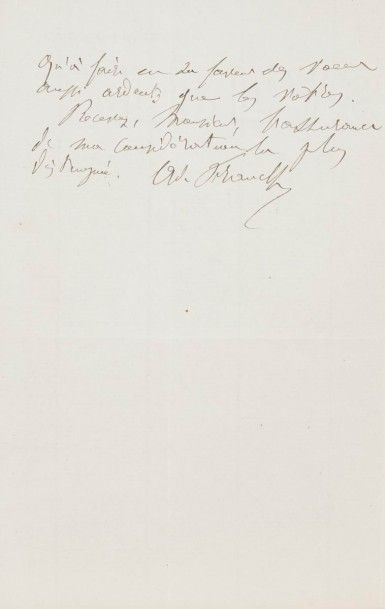 qu'à faire en sa faveur des vœux
aussi ardents que les vôtres.
Recevez, Monsieur, l'assurance
de ma considération la plus
distinguée. Ad. Franck